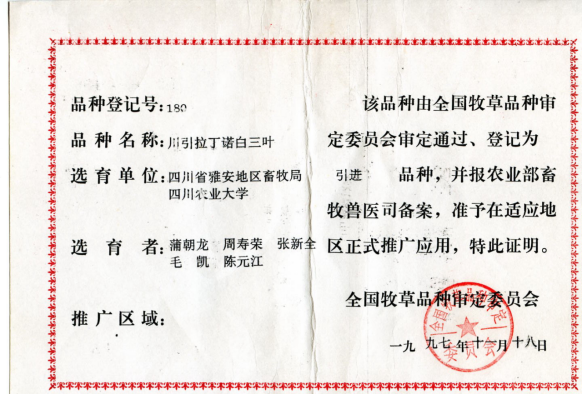 品种登记号:180
品种名称:川引拉丁诺白三叶
选育单位:四川省雅安地区畜牧局
四川农业大学
选育者:蒲朝龙 周寿荣 张新全
毛凯 陈元江
推广区域:
该品种由全国牧草品种审
定委员会审定通过、登记为
引进 品种,并报农业部畜
牧兽医司备案,准予在适应地
区正式推广应用,特此证明。
全国牧草品种审定委员会
一九九七年十 月十八日